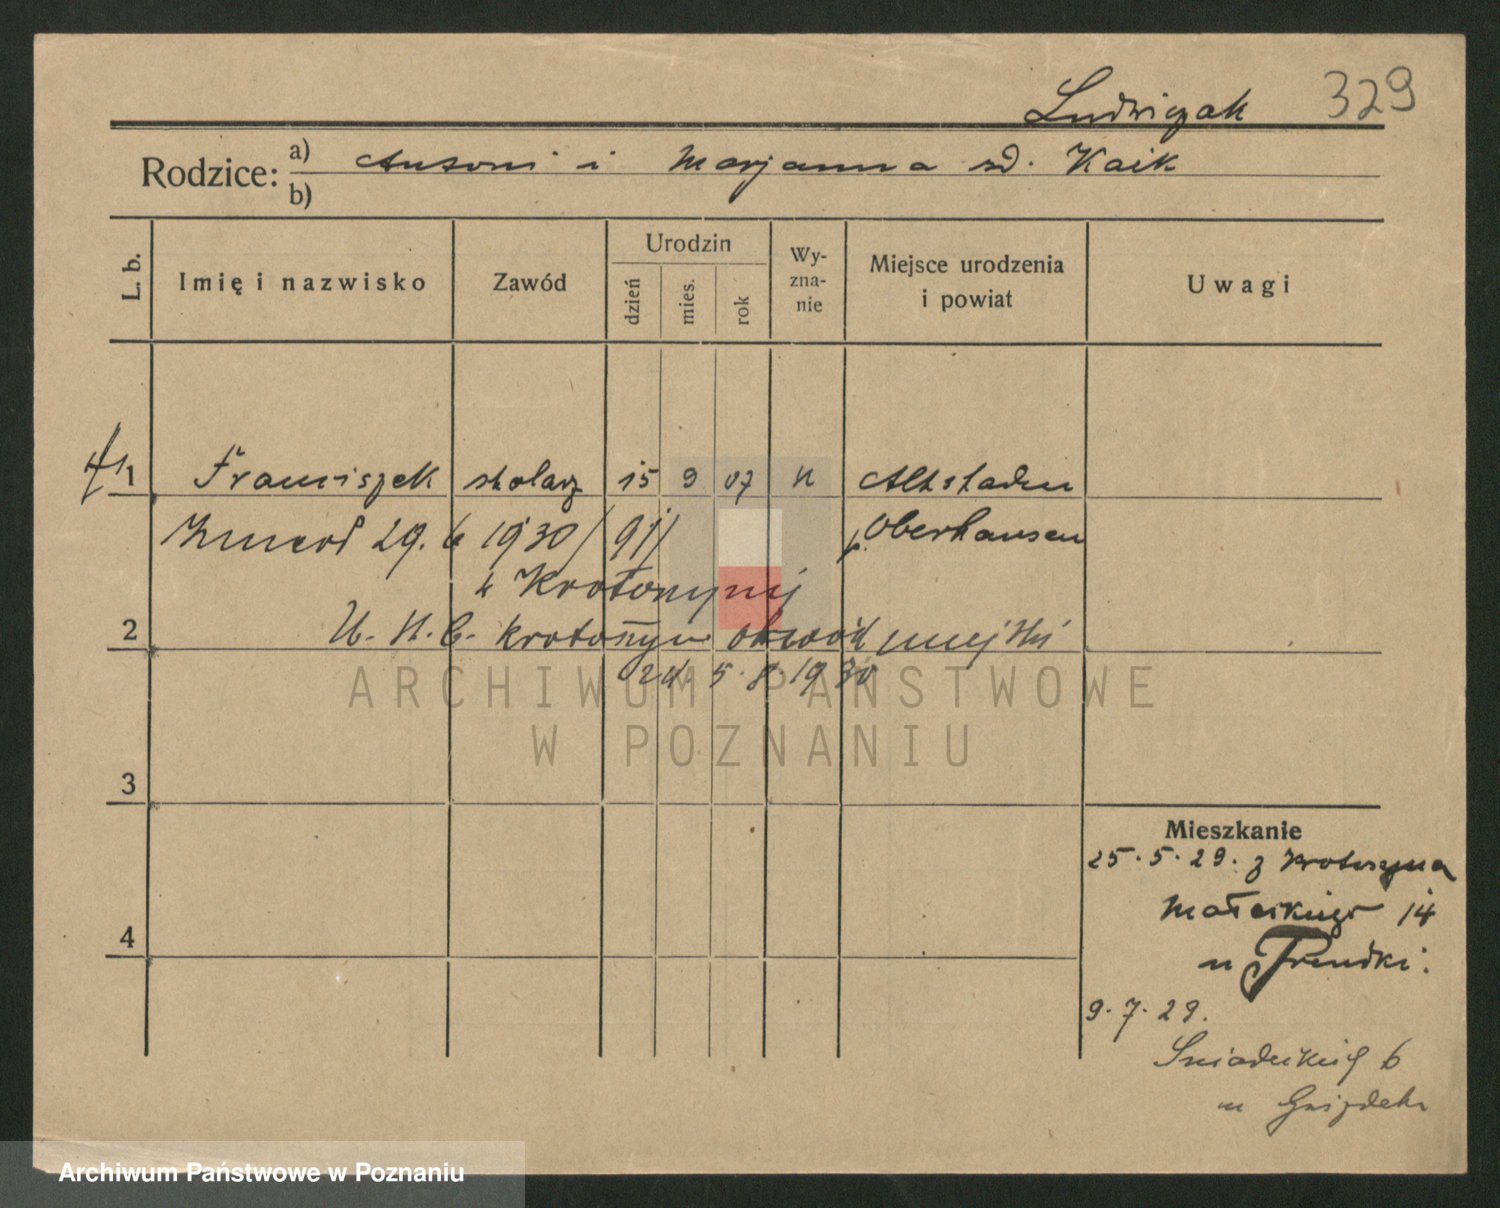 Ludwiczak 329
Rodzice: a) Antoni i Marjanna zd. Kaik
b)
L. b. Imię i nazwisko Zawód Urodzin dzień mies. rok Wy-zna-nie Miejsce urodzenia i powiat Uwagi
1 Franciszek stolarz 15 9 07 k Altstaden
Zmarł 29. 6 1930 p. Oberhausen
w Krotoszynie
2 U. S. C. Krotoszyn obwód miejski
5. 8. 1930
ARCHIWUM PAŃSTWOWE
W POZNANIU
3
Mieszkanie
25. 5. 29. z Krotoszyna
Małeckiego 14
4
u Frendki.
9. 7. 29.
Śniadeckich 6
u
Archiwum Państwowe w Poznaniu